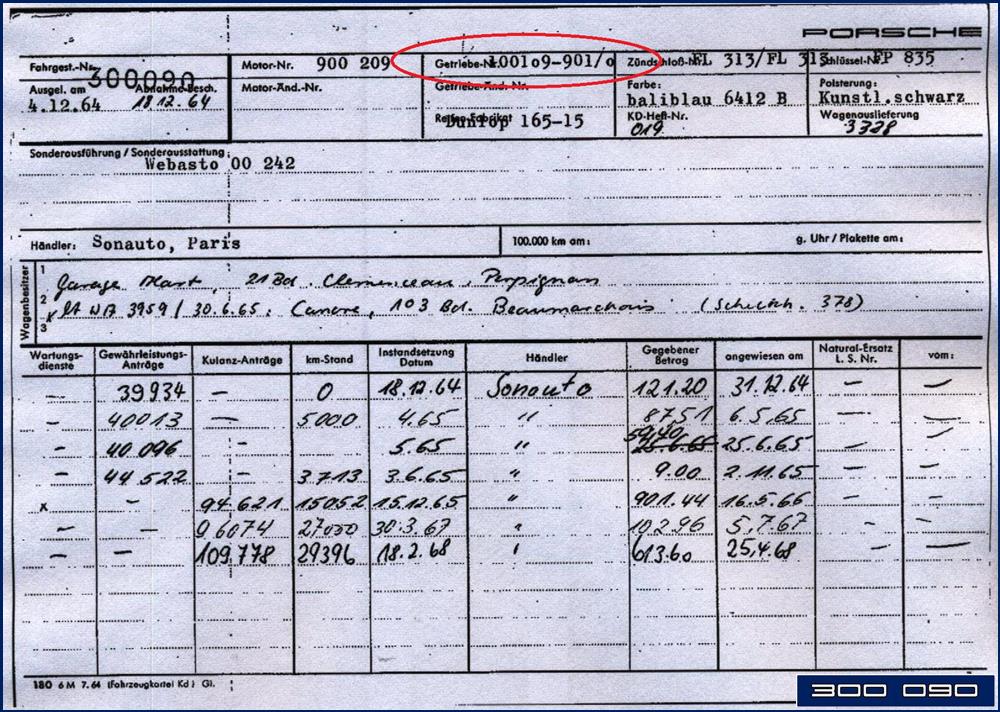 PORSCHE
Fahrgest.-Nr. 300090
Motor-Nr. 900 209
Getriebe-Nr. 100109-901/0
Zündschloß-Nr. FL 313/FL 313
Schlüssel-Nr. FP 835
Ausgel. am 4.12.64
Abnahme-Besch. 18.12.64
Motor-Änd.-Nr.
Getriebe-Änd.-Nr.
Farbe: baliblau 6412 B
Polsterung: Kunstl.schwarz
Reifen-Fabrikat Dunlop 165-15
KD-Heft-Nr. 019
Wagenauslieferung 3328
Sonderausführung / Sonderausstattung:
Webasto 00 242
Händler: Sonauto, Paris
100.000 km am:
g. Uhr / Plakette am:
Wagenbesitzer
1 Garage Mart, 21 Bd. Clemenceau, Perpignan
2 lt WA 3959 / 30.6.65: Canore, 103 Bd. Beaumarchais (378)
3
Wartungsdienste Gewährleistungs-Anträge Kulanz-Anträge km-Stand Instandsetzung Datum Händler Gegebener Betrag angewiesen am Natural-Ersatz L. S. Nr. vom:
- 39934 - 0 18.12.64 Sonauto 121.20 31.12.64 - -
- 40013 - 5000 4.65 " 87.51 6.5.65 - -
- 40096 - 5.65 " 59,40 25.6.65 25.6.65 - -
- 44522 - 3713 3.6.65 " 9.00 2.11.65 - -
x - 94621 15052 15.12.65 " 901.44 16.5.66 - -
- - 96074 27000 30.3.67 " 102.96 5.7.67 - -
- - 109.778 29396 18.2.68 " 613.60 25.4.68 - -
180 6 M 7. 64 (Fahrzeugkartei Kd) Gl.
300 090